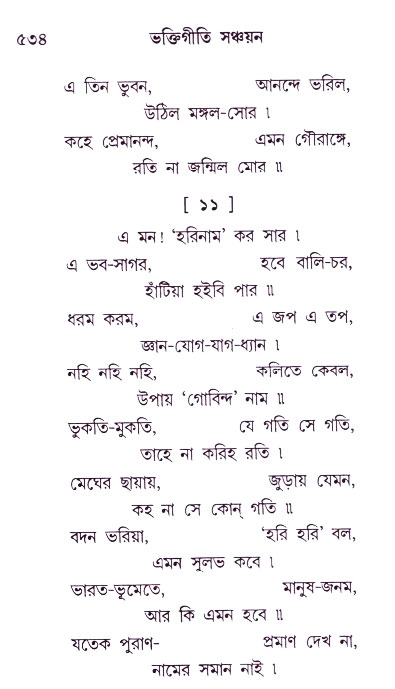 ৫৩৪ ভক্তিগীতি সঞ্চয়ন
এ তিন ভুবন, আনন্দে ভরিল,
উঠিল মঙ্গল-সোর ৷
কহে প্রেমানন্দ, এমন গৌরাঙ্গে,
রতি না জন্মিল মোর ॥
[ ১১ ]
এ মন! ‘হরিনাম’ কর সার ৷
এ ভব-সাগর, হবে বালি-চর,
হাঁটিয়া হইবি পার ॥
ধরম করম, এ জপ এ তপ,
জ্ঞান-যোগ-যাগ-ধ্যান ৷
নহি নহি নহি, কলিতে কেবল,
উপায় ‘গোবিন্দ’ নাম ॥
ভুকতি-মুকতি, যে গতি সে গতি,
তাহে না করিহ রতি ৷
মেঘের ছায়ায়, জুড়ায় যেমন,
কহ না সে কোন্ গতি ॥
বদন ভরিয়া, ‘হরি হরি’ বল,
এমন সুলভ কবে ৷
ভারত-ভূমেতে, মানুষ-জনম,
আর কি এমন হবে ॥
যতেক পুরাণ- প্রমাণ দেখ না,
নামের সমান নাই ৷